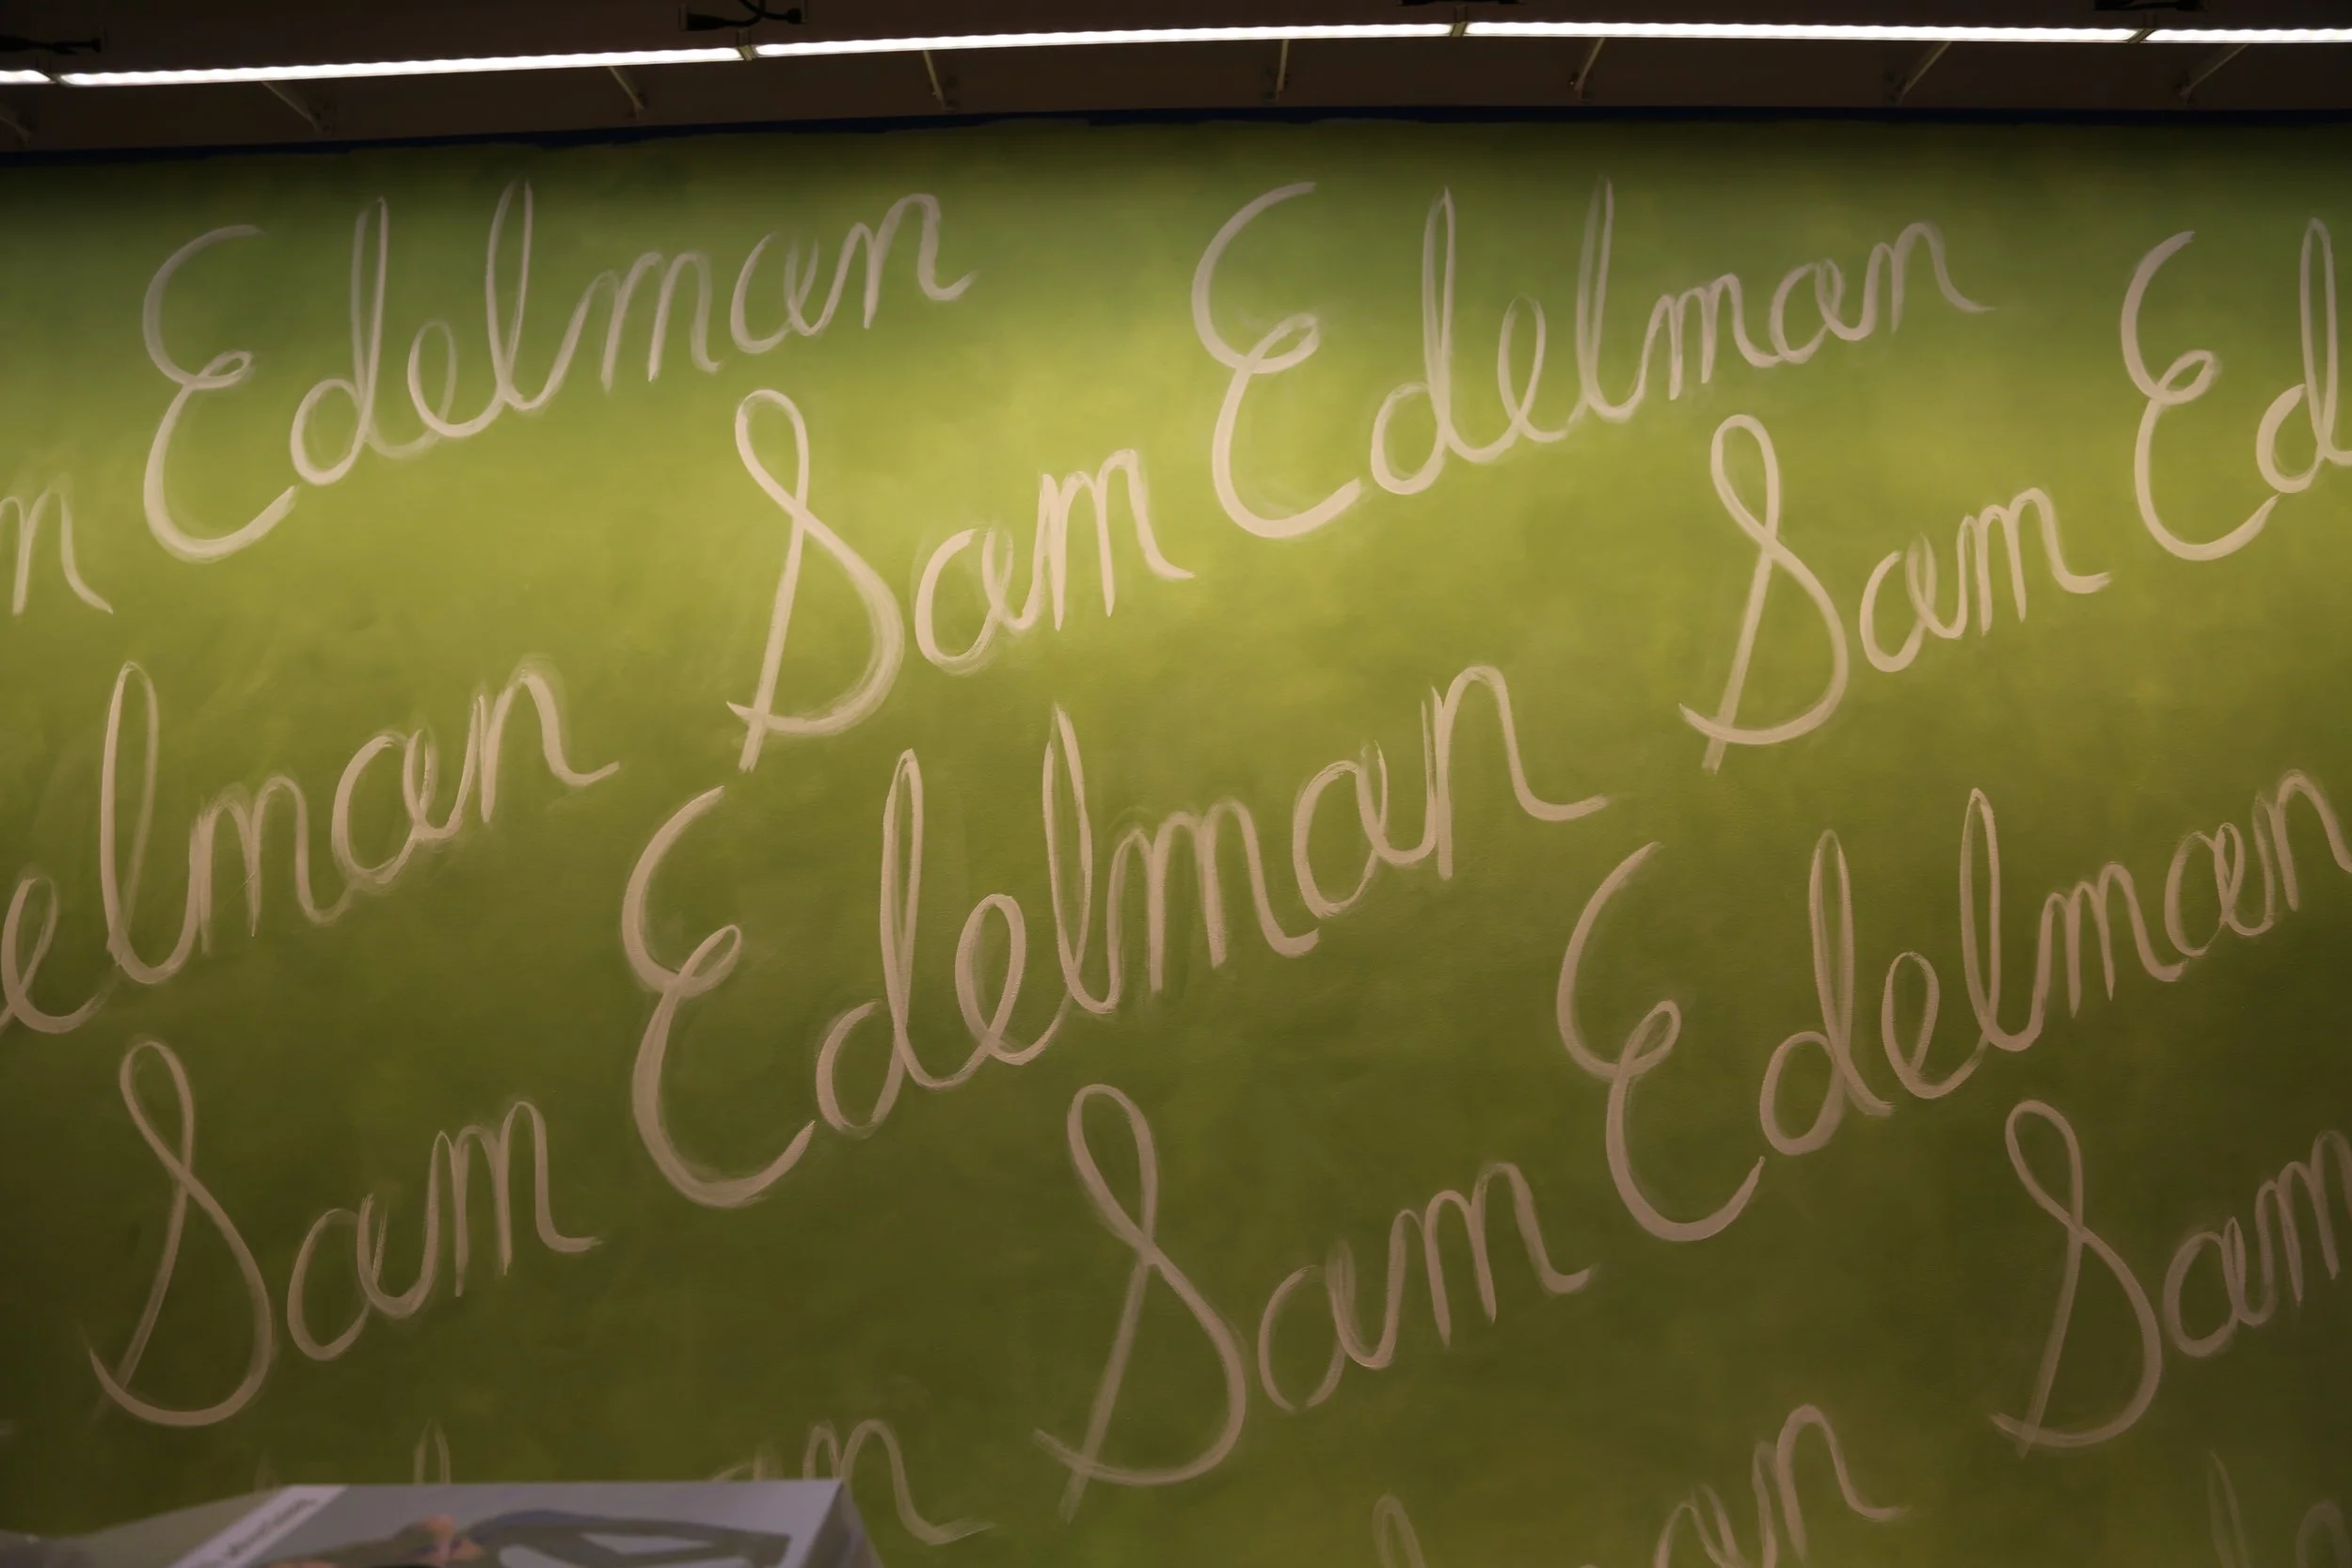 Edelman
Sam Edelman
Sam Ed
elman
Sam Edelman
Sam Edelman
Sam